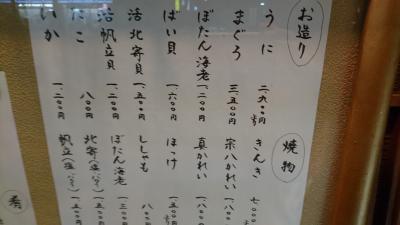 お造り
うに 二、九〇〇円
まぐろ 三、五〇〇円
ぼたん海老 一、二〇〇円
ばい貝 一、六〇〇円
活北寄貝 一、五〇〇円
活帆立貝 一、二〇〇円
たこ 八〇〇円
いか 一、二〇〇円
焼物
きんき 七、〇〇
宗八かれい 一、八〇〇
真かれい 一、八〇〇
ほっけ 一、五〇〇円
ししゃも 八〇
ぼたん海老 一、三〇〇
北寄
帆立
肴